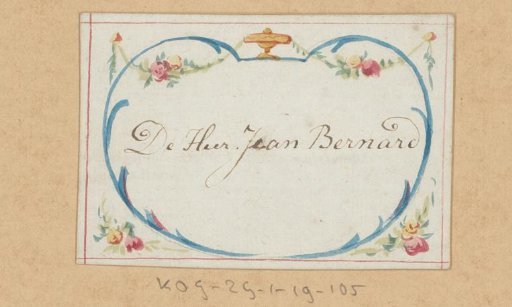 De Heer. Jean Bernard
KOG-2G-1-19-105